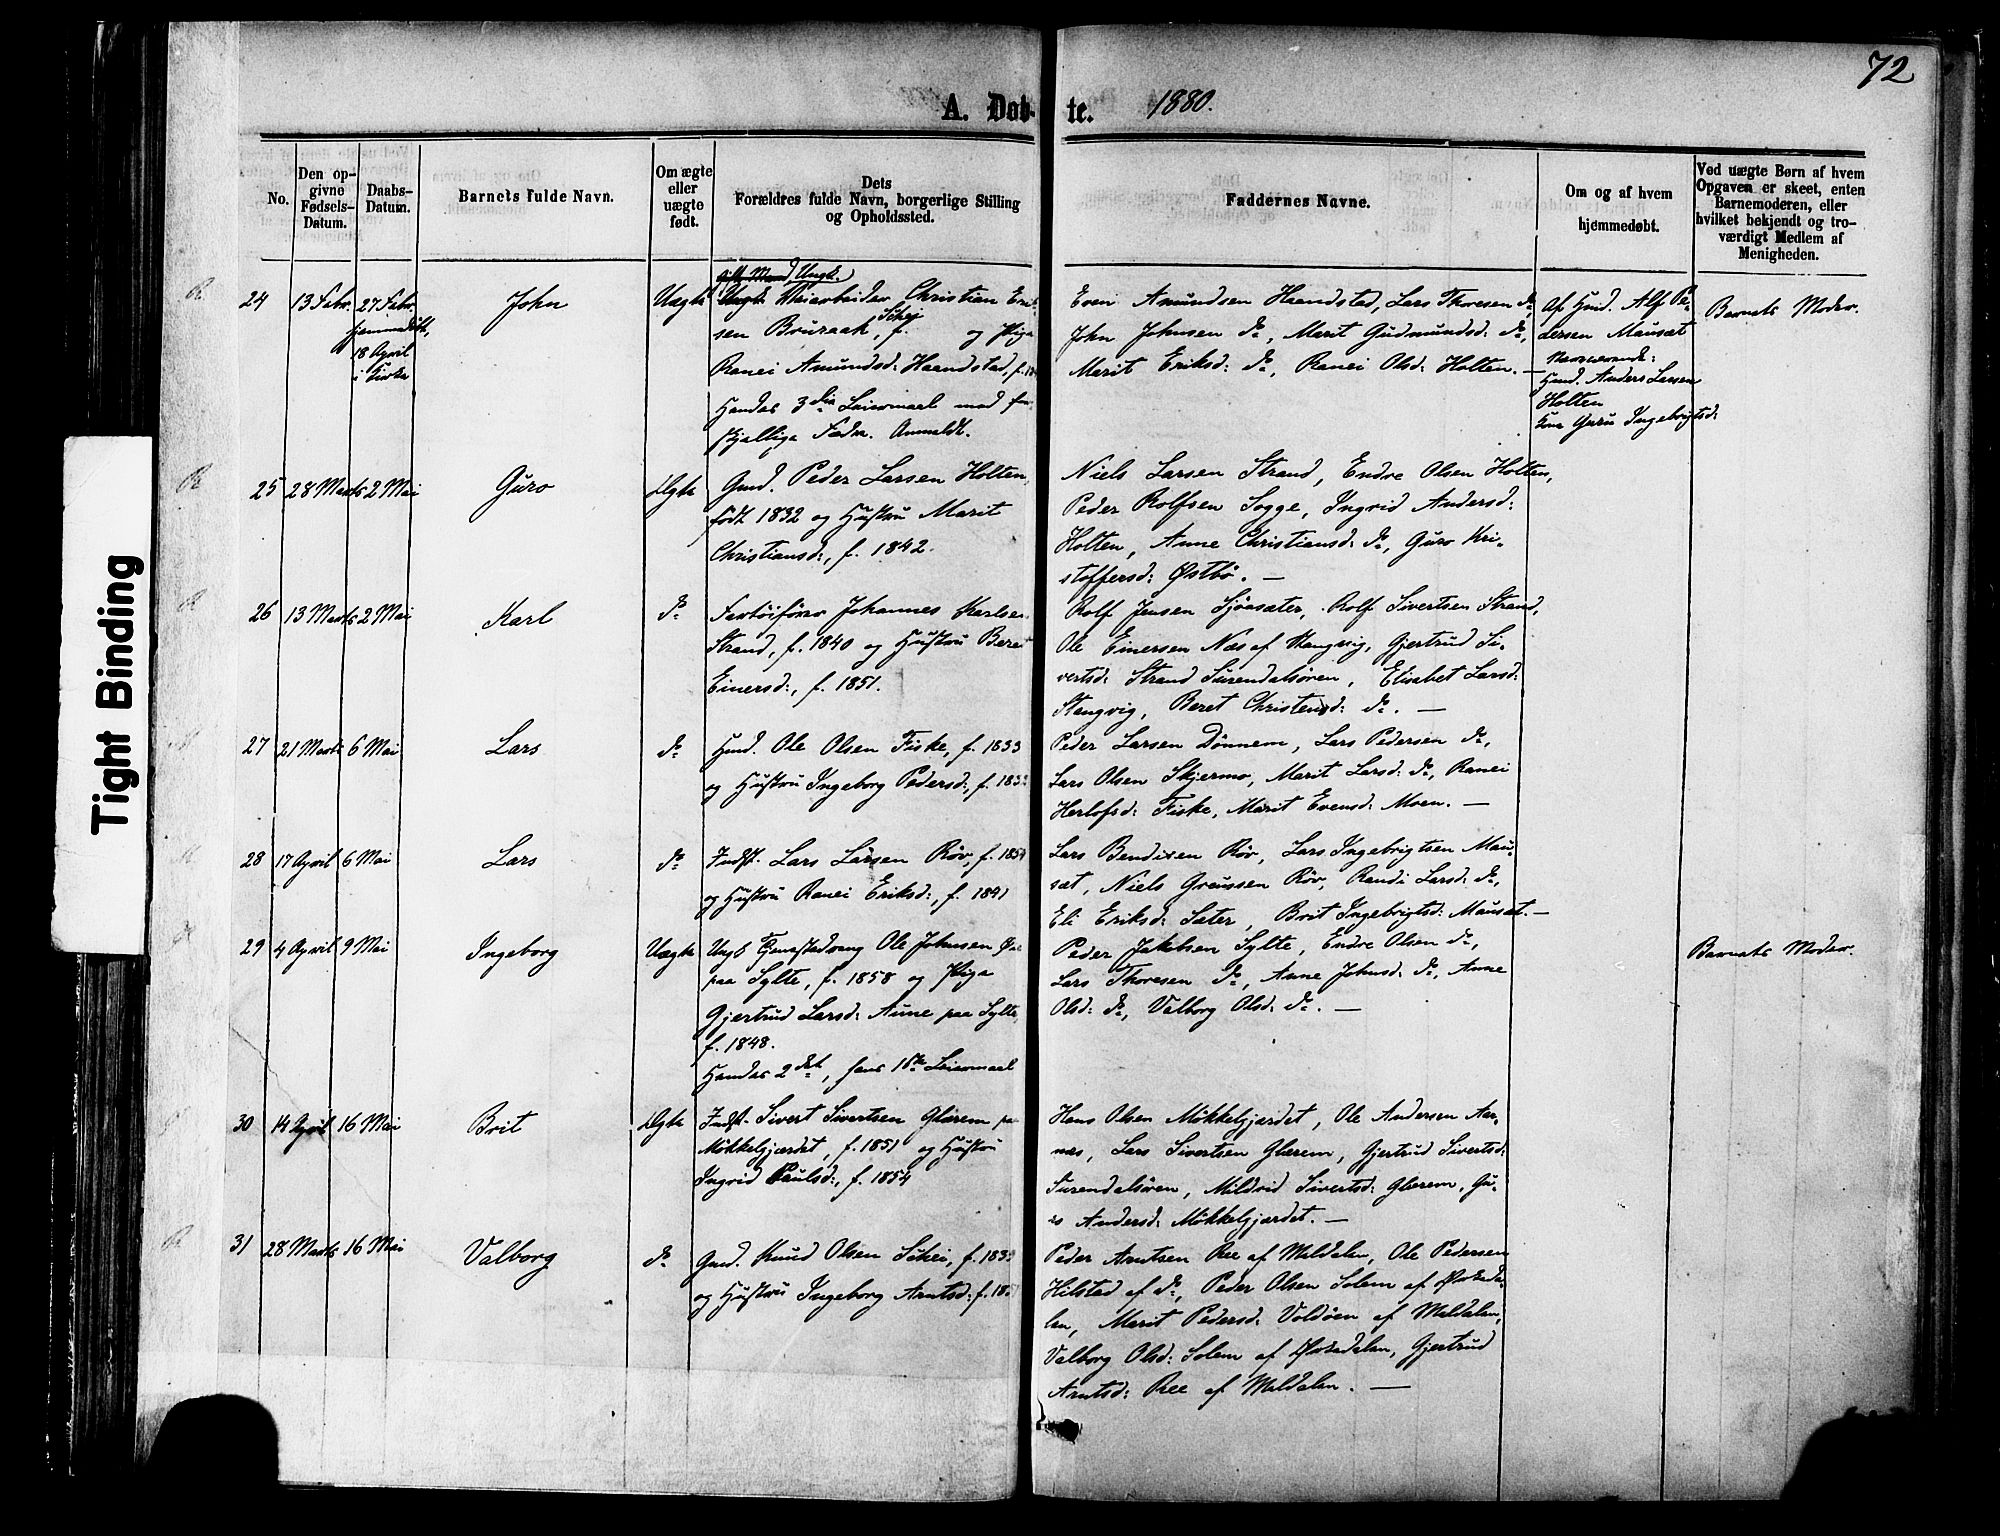 72
A. Døb- te. 1880.
No.
Den opgivne Fødsels-Datum.
Daabs-Datum.
Barnets fulde Navn.
Om ægte eller uægte født.
Dets Forældres fulde Navn, borgerlige Stilling og Opholdssted.
Faddernes Navne.
Om og af hvem hjemmedøbt.
Ved uægte Børn af hvem Opgaven er skeet, enten Barnemoderen, eller hvilket bekjendt og troværdigt Medlem af Menigheden.
24 13 Febr. 27 Febr. hjemmedøbt, 18 April i Kirke
John
Uægte
gift Mand Ungk.
Ungk. Veiarbeider Christian Erik-
sen Bruraak, Schei f. og Pige
Ranei Amundsd: Haandstad, f.
Hendes 3die Leiermaal med for-
skjellige Fædre. Anmeldt.
Even Amundsen Haandstad, Lars Thoresen do,
John Johnsen do, Marit Gudmundsd: do,
Marit Eriksd: do, Ranei Olsd: Holten. —
Af Gmd. Alf Pe-
dersen Mausæt
Nærværende:
Gmd. Anders Larsen
Holten
Kone Guru Ingebrigtsd:
Barnets Moder.
25 28 Marts 2 Mai
Guro
Ægte
Gmd. Peder Larsen Holten,
født 1832 og Hustru Marit
Christiansd:, f. 1842.
Niels Larsen Strand, Endre Olsen Holten,
Peder Rolfsen Sogge, Ingrid Andersd:
Holten, Anne Christiansd: do, Guro Kri-
stoffersd: Østbö. —
26 13 Marts 2 Mai
Karl
do
Fartöiförer Johannes Karlsen
Strand, f. 1840 og Hustru Beret
Einersd:, f. 1851.
Rolf Jensen Sjöasæter, Rolf Sivertsen Strand,
Ole Einersen Næs af Stangvig, Gjertrud Si-
vertsd: Strand Surendalsören, Elisabet Larsd:
Stangvig, Beret Christensd: do. —
27 21 Marts 6 Mai
Lars
do
Gmd. Ole Olsen Fiske, f. 1833
og Hustru Ingeborg Pedersd:, f. 1833
Peder Larsen Dönnem, Lars Pedersen do,
Lars Olsen Skjermo, Marit Larsd: do, Ranei
Herlofsd: Fiske, Marit Evensd: Moen. —
28 17 April 6 Mai
Lars
do
Indst. Lars Larsen Röv, f. 1854
og Hustru Ranei Eriksd:, f. 1841
Lars Bendixen Röv, Lars Ingebrigtsen Mau-
sæt, Niels Greussen Röv, Randi Larsd: do,
Eli Eriksd: Sæter, Brit Ingebrigtsd: Mausæt. —
29 4 April 9 Mai
Ingeborg
Uægte
Ungk. Tjenestedreng Ole Johnsen
paa Sylte, f. 1858 og Pige
Gjertrud Larsd: Aune paa Sylte,
f. 1848.
Hendes 2det, hans 1ste Leiermaal
Peder Jakobsen Sylte, Endre Olsen do,
Lars Thoresen do, Anne Johnsd: do, Anne
Olsd: do, Valborg Olsd: do. —
Barnets Moder.
30 14 April 16 Mai
Brit
Ægte
Indst. Sivert Sivertsen Glærem paa
Mökkelgjærdet, f. 1851 og Hustru
Ingrid Paulsd:, f. 1854
Hans Olsen Mökkelgjærdet, Ole Andersen Aar-
næs, Lars Sivertsen Glærem, Gjertrud Sivertsd:
Surendalsören, Mildrid Sivertsd: Glærem, Gu-
ro Andersd: Mökkelgjærdet. —
31 28 Marts 16 Mai
Valborg
do
Gmd. Knud Olsen Schei, f. 183
og Hustru Ingeborg Arntsd: f. 185
Peder Arntsen Ree af Meldalen, Ole Pedersen
Hilstad af do, Peder Olsen Solem af Örkeda-
len, Marit Pedersd: Voldöen af Meldalen,
Valborg Olsd: Solem af Örkedalen, Gjertrud
Arntsd: Ree af Meldalen. —
Tight Binding